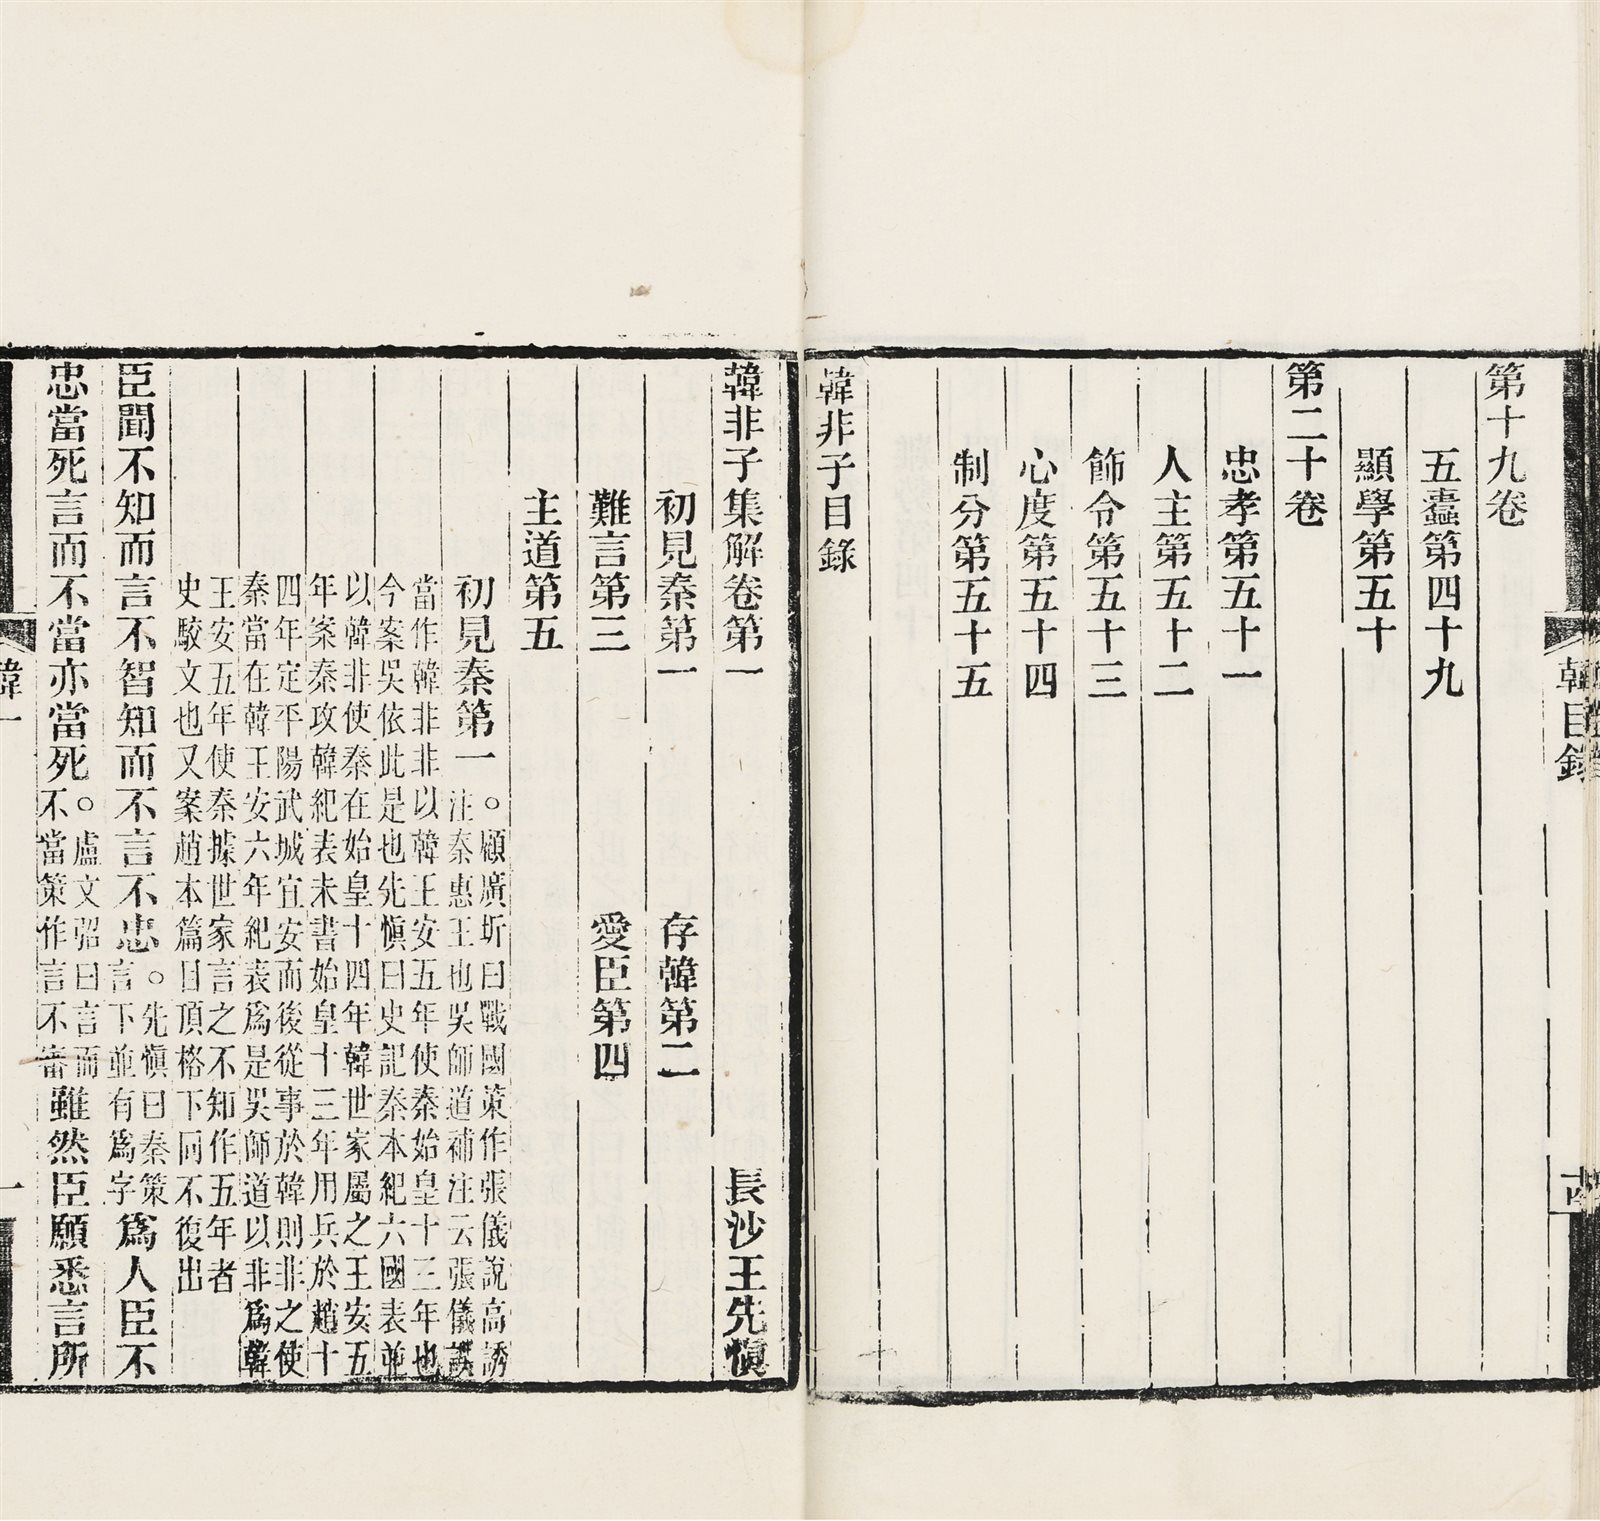 第十九卷
五蠹第四十九
顯學第五十
第二十卷
忠孝第五十一
人主第五十二
飾令第五十三
心度第五十四
制分第五十五
韓非子目錄
韓非子集解卷第一 長沙王先愼
初見秦第一 存韓第二
難言第三 愛臣第四
主道第五
初見秦第一。顧廣圻曰戰國策作張儀說高誘
注秦惠王也吳師道補注云張儀誤
當作韓非非以韓王安五年使秦始皇十三年也
今案吳依此是也先愼曰史記秦本紀六國表並
以韓非使秦在始皇十四年韓世家屬之王安五
年案秦攻韓紀表未書始皇十三年用兵於趙十
四年定平陽武城宜安而後從事於韓則非之使
秦當在韓王安六年紀表爲是吳師道以非爲韓
王安五年使秦據世家言之不知作五年者
史駁文也又案趙本篇目頂格下同不復出
臣聞不知而言不智知而不言不忠。先愼曰秦策
言下並有爲字爲人臣不
忠當死言而不當亦當死。盧文弨曰言而
不當策作言不審雖然臣願悉言所
韓目錄
韓一
一